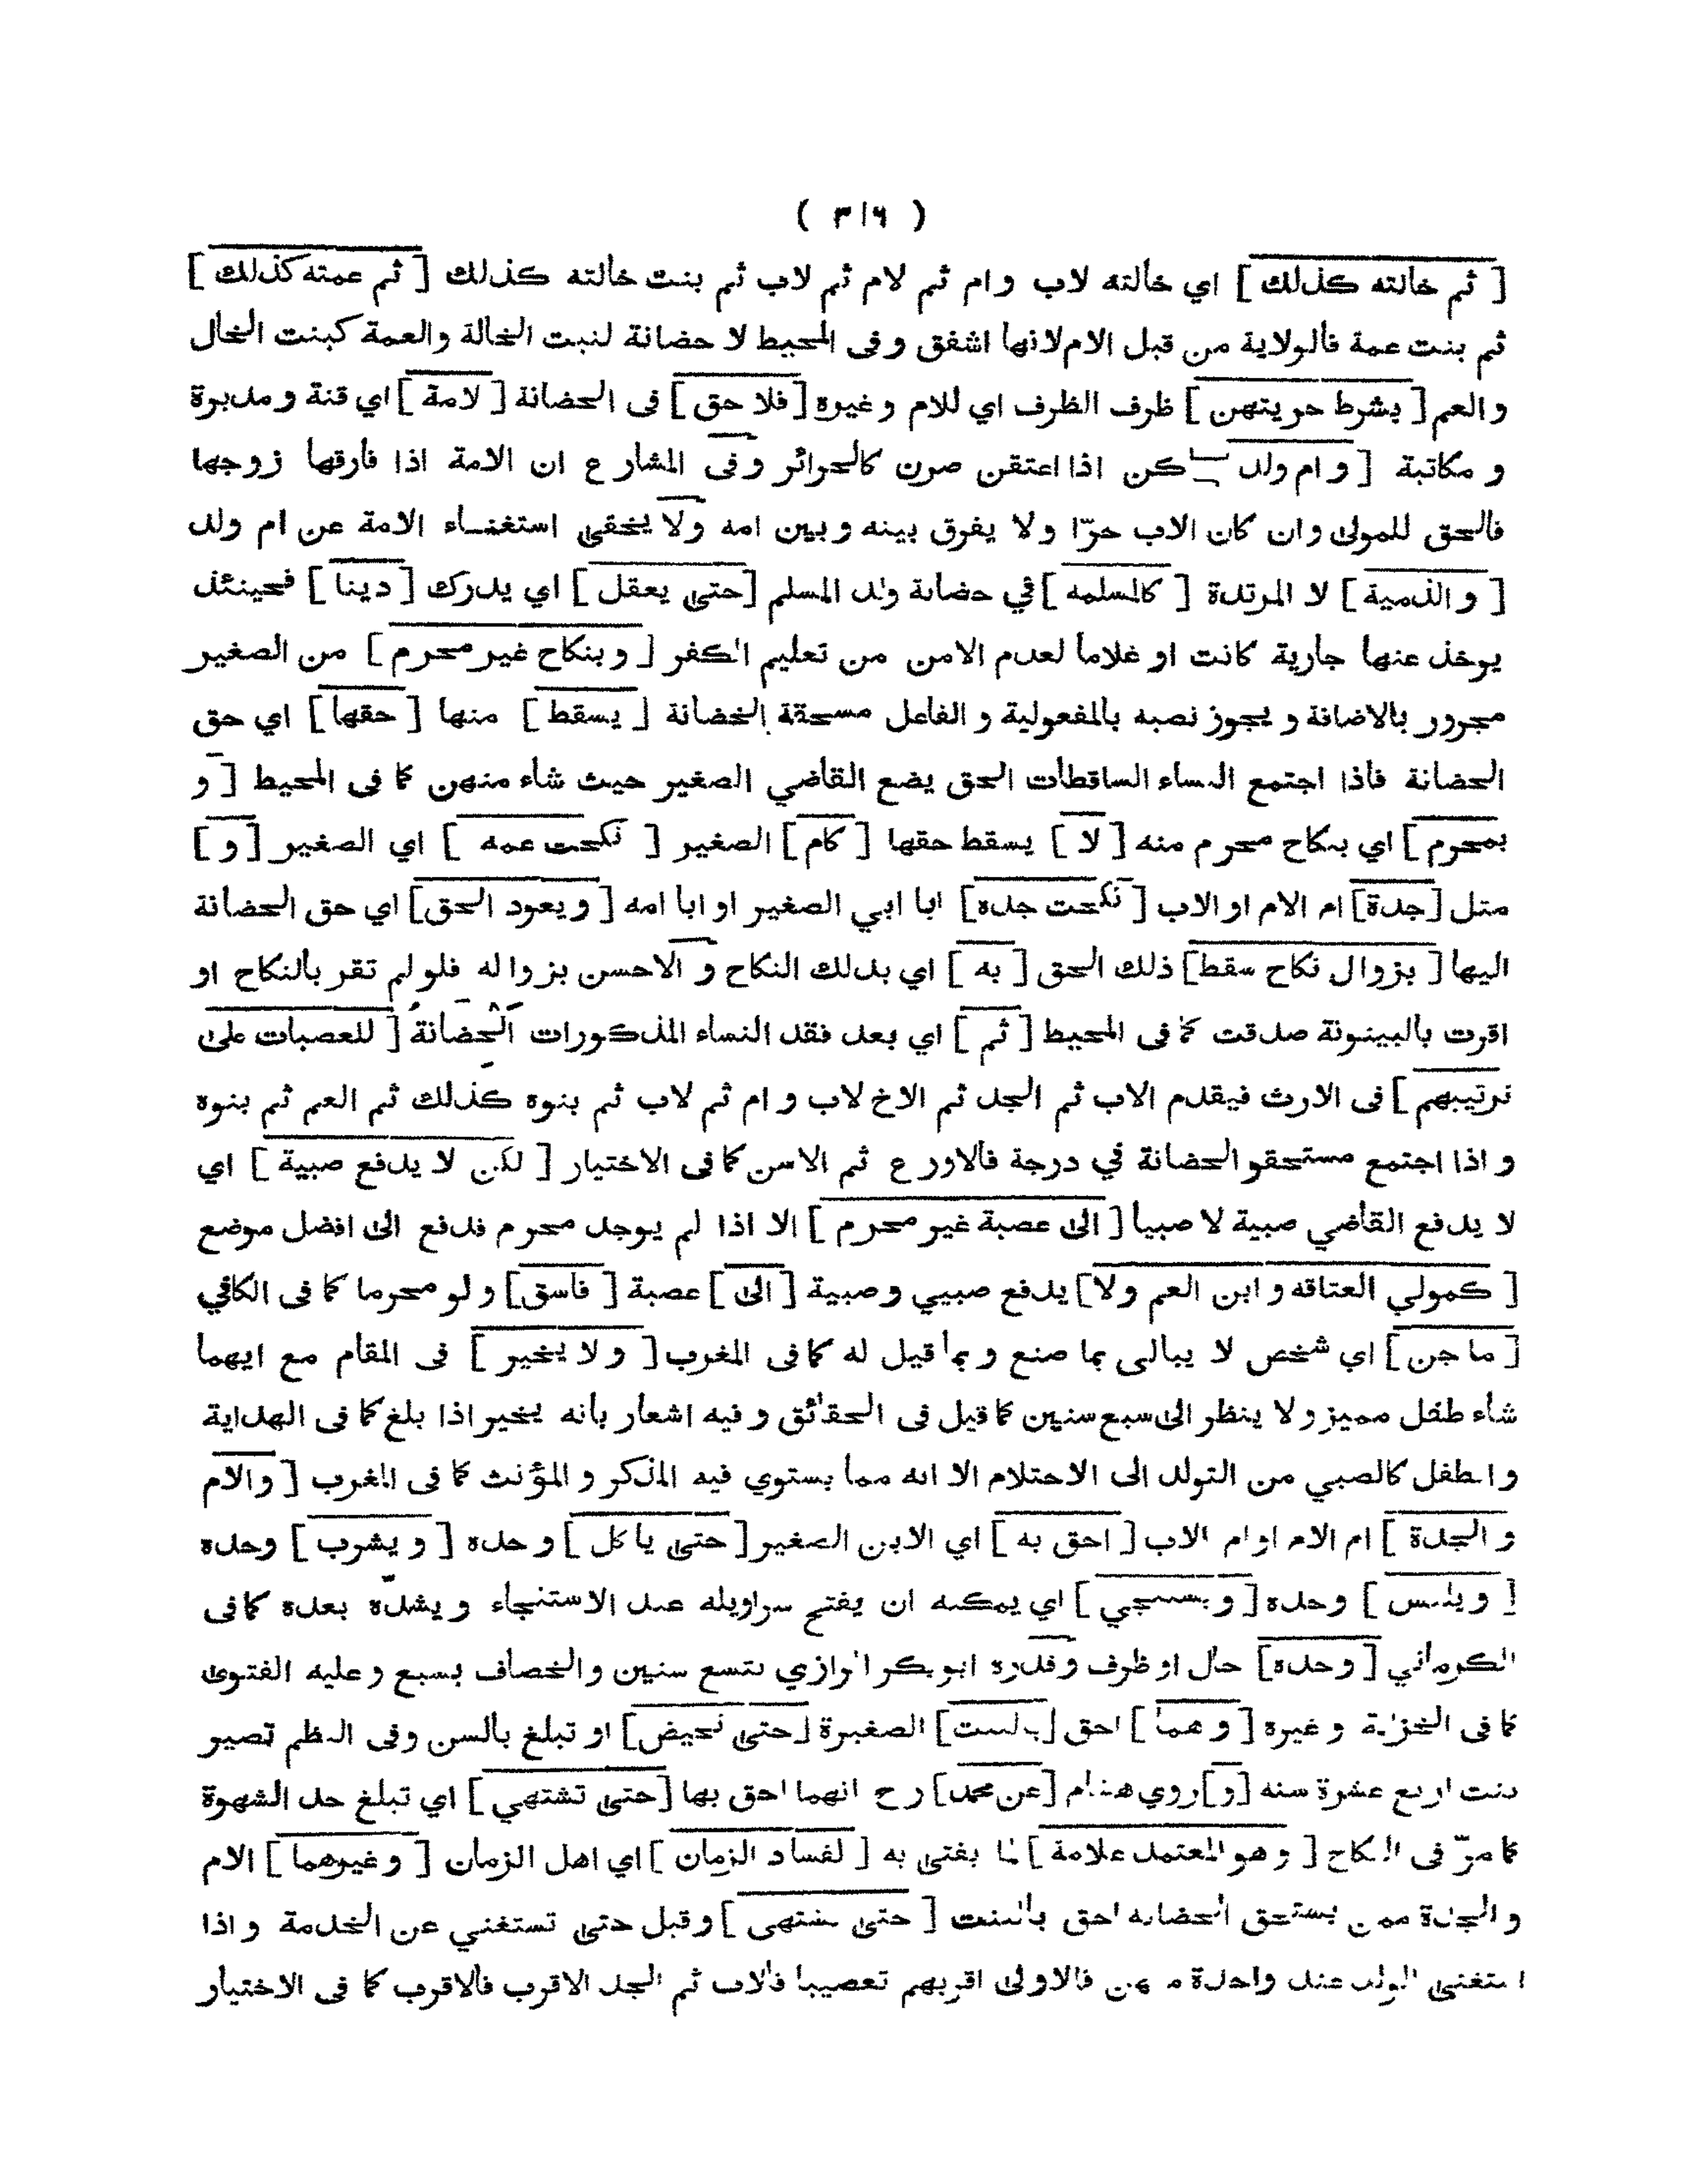 ( ٣١٦ )
[ ثم خالته كذلك ] اي خالته لاب و ام ثم لام ثم لاب ثم بنت خالته كذلك [ ثم عمته كذلك ]
ثم بنت عمة فالولاية من قبل الام لانها اشفق وفى المحيط لا حضانة لنبت الخالة والعمة كبنت الخال
و العم [ بشرط حريتهن ] ظرف الظرف اي للام وغيره [ فلا حق ] فى الحضانة [ لامة ] اي قنة و مدبرة
و مكاتبة [ و ام ولد كن اذا اعتقن صرن كالحرائر وفى المشارع ان الامة اذا فارقها زوجها
فالحق للمولى وان كان الاب حرّا ولا يفرق بينه وبين امه ولا يخفى استغناء الامة عن ام ولد
[ و الذمية ] لا المرتدة [ كالمسلمه ] في حضانة ولد المسلم [ حتى يعقل ] اي يدرك [ دينا ] فحينئذ
يوخذ عنها جارية كانت او غلاما لعدم الامن من تعليم الكفر [ و بنكاح غير محرم ] من الصغير
مجرور بالاضانة و يجوز نصبه بالمفعولية و الفاعل مسحقة الخضانة [ يسقط ] منها [ حقها ] اي حق
الحضانة فاذا اجتمع النساء الساقطات الحق يضع القاضي الصغير حيث شاء منهن كما فى المحيط [ و
بمحرم ] اي بنكاح محرم منه [ لا ] يسقط حقها [ كام ] الصغير [ نكحت عمه ] اي الصغير [ و ]
مثل [ جدة ] ام الام او الاب [ نكحت جده ] ابا ابي الصغير او ابا امه [ و يعود الحق ] اي حق الحضانة
اليها [ بزوال نكاح سقط ] ذلك الحق [ به ] اي بذلك النكاح و الاحسن بزواله فلو لم تقر بالنكاح او
اقرت بالبينونة صدقت كما فى المحيط [ ثم ] اي بعد فقد النساء المذكورات الحضانة [ للعصبات على
ترتيبهم ] فى الارث فيقدم الاب ثم الجد ثم الاخ لاب و ام ثم لاب ثم بنوه كذلك ثم العم ثم بنوه
و اذا اجتمع مستحقو الحضانة في درجة فالاورع ثم الاسن كما فى الاختيار [ لكن لا يدفع صبية ] اي
لا يدفع القاضي صبية لا صبيا [ الى عصبة غير محرم ] الا اذا لم يوجد محرم فدفع الى افضل موضع
[ كمولي العتاقه و ابن العم ولا ] يدفع صبيي وصبية [ الى ] عصبة [ فاسق ] و لو محرما كما فى الكافي
[ ما جن ] اي شخص لا يبالى بما صنع و بما قيل له كما فى المغرب [ و لا يخير ] فى المقام مع ايهما
شاء طفل مميز ولا ينظر الى سبع سنين كما قيل فى الحقائق و فيه اشعار بانه يخير اذا بلغ كما فى الهداية
و الطفل كالصبي من التولد الى الاحتلام الا انه مما يستوي فيه المذكر و المؤنث كما فى المغرب [ والام
و الجدة ] ام الام او ام الاب [ احق به ] اي الابن الصغير [ حتى ياكل ] وحده [ و يشرب ] وحده
[ ويلبس ] وحده [ و يستنجي ] اي يمكنه ان يفتح سراويله عند الاستنجاء و يشدّه بعده كما فى
الكرماني [ وحده ] حال او ظرف وقدره ابو بكر الرازي بتسع سنين والخصاف بسبع وعليه الفتوى
كما فى الخزانة وغيره [ و هما ] احق [ بالبنت ] الصغيرة [ حتى تحيض ] او تبلغ بالسن وفى النظم تصير
بنت اربع عشرة سنه [ و ] روي هشام [ عن محمد ] رح انهما احق بها [ حتى تشتهي ] اي تبلغ حد الشهوة
كما مرّ فى النكاح [ وهو المعتمد علامة ] لما يفتى به [ لفساد الزمان ] اي اهل الزمان [ و غيرهما ] الام
و الجدة ممن يستحق الحضانه احق بالبنت [ حتى تشتهى ] وقبل حتى تستغني عن الخدمة و اذا
استغنى الولد عند واحدة منهن فالاولى اقربهم تعصيبا فالاب ثم الجد الاقرب فالاقرب كما فى الاختيار